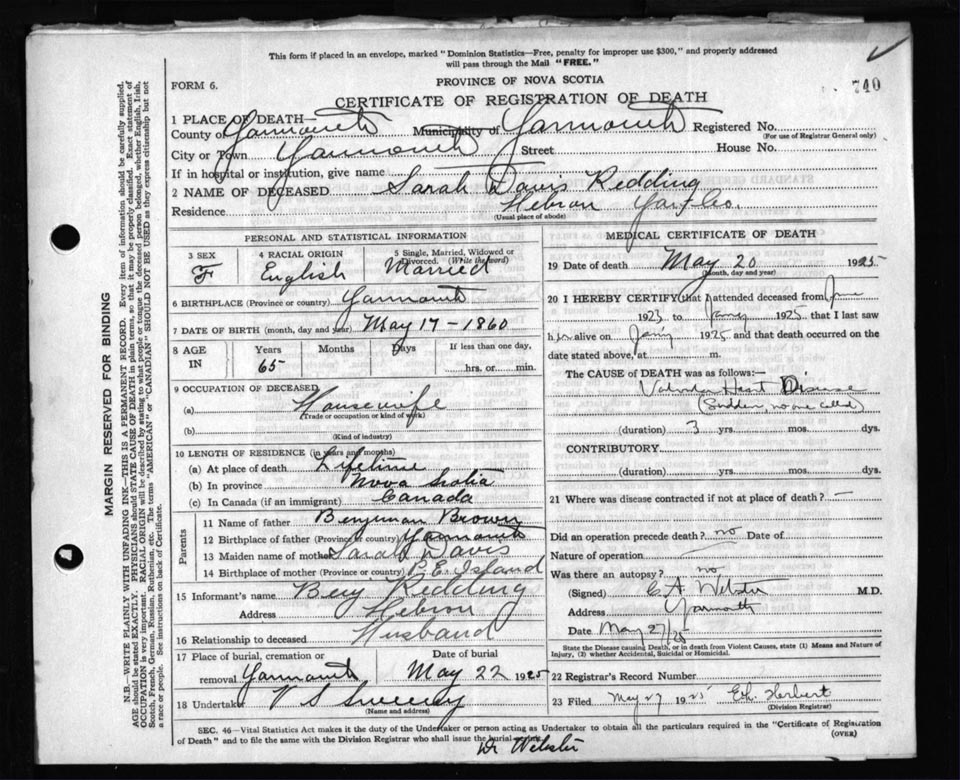 This form if placed in an envelope, marked "Dominion Statistics—Free, penalty for improper use $300," and properly addressed
will pass through the Mail "FREE."
FORM 6.
PROVINCE OF NOVA SCOTIA
740
CERTIFICATE OF REGISTRATION OF DEATH
1 PLACE OF DEATH—
County of Yarmouth Municipality of Yarmouth Registered No.
(For use of Registrar General only)
City or Town Yarmouth Street House No.
If in hospital or institution, give name
2 NAME OF DECEASED Sarah Davis Redding
Residence Hebron Yar. Co.
(Usual place of abode)
PERSONAL AND STATISTICAL INFORMATION
3 SEX 4 RACIAL ORIGIN 5 Single, Married, Widowed or Divorced. (Write the word)
F English Married
6 BIRTHPLACE (Province or country) Yarmouth
7 DATE OF BIRTH (month, day and year) May 17–1860
8 AGE IN Years Months Days If less than one day,
65 hrs. or min.
9 OCCUPATION OF DECEASED
(a) Housewife
(Trade or occupation or kind of work)
(b)
(Kind of industry)
10 LENGTH OF RESIDENCE (in years and months)
(a) At place of death Lifetime
(b) In province Nova Scotia
(c) In Canada (if an immigrant) Canada
Parents
11 Name of father Benjiman Brown
12 Birthplace of father (Province or country) Yarmouth
13 Maiden name of mother Sarah Davis
14 Birthplace of mother (Province or country) P.E. Island
15 Informant's name Benj Redding
Address Hebron
16 Relationship to deceased Husband
17 Place of burial, cremation or removal Yarmouth Date of burial May 22 1925
18 Undertaker V S Sweeney
(Name and address)
MEDICAL CERTIFICATE OF DEATH
19 Date of death May 20 1925
(Month, day and year)
20 I HEREBY CERTIFY that I attended deceased from June
1923 to 1925 that I last saw
h er alive on 1925 and that death occurred on the
date stated above, at m.
The CAUSE OF DEATH was as follows:—
Valvular Heart Disease
(Sudden, no one called)
(duration) 3 yrs. mos. dys.
CONTRIBUTORY
(duration) yrs. mos. dys.
21 Where was disease contracted if not at place of death? —
Did an operation precede death? no Date of
Nature of operation
Was there an autopsy? no
(Signed) C A Webster M.D.
Address Yarmouth
Date May 27/25
State the Disease causing Death, or in death from Violent Causes, state (1) Means and Nature of
Injury, (2) whether Accidental, Suicidal or Homicidal.
22 Registrar's Record Number
23 Filed May 27 1925 Eth. Herbert
(Division Registrar)
SEC. 46—Vital Statistics Act makes it the duty of the Undertaker or person acting as Undertaker to obtain all the particulars required in the "Certificate of Registration
of Death" and to file the same with the Division Registrar who shall issue the burial
(OVER)
Dr Webster
MARGIN RESERVED FOR BINDING
N.B.—WRITE PLAINLY WITH UNFADING INK—THIS IS A PERMANENT RECORD. Every item of information should be carefully supplied.
AGE should be stated EXACTLY. PHYSICIANS should STATE CAUSE OF DEATH in plain terms, so that it may be properly classified. Exact statement of
OCCUPATION is very important. RACIAL ORIGIN will be described by stating to what people or tongue the deceased person belonged, whether English, Irish,
Scotch, French, German, Russian, Ruthenian, etc. The terms "AMERICAN" or "CANADIAN" SHOULD NOT BE USED as they express citizenship but not
a race or people. See instructions on back of Certificate.